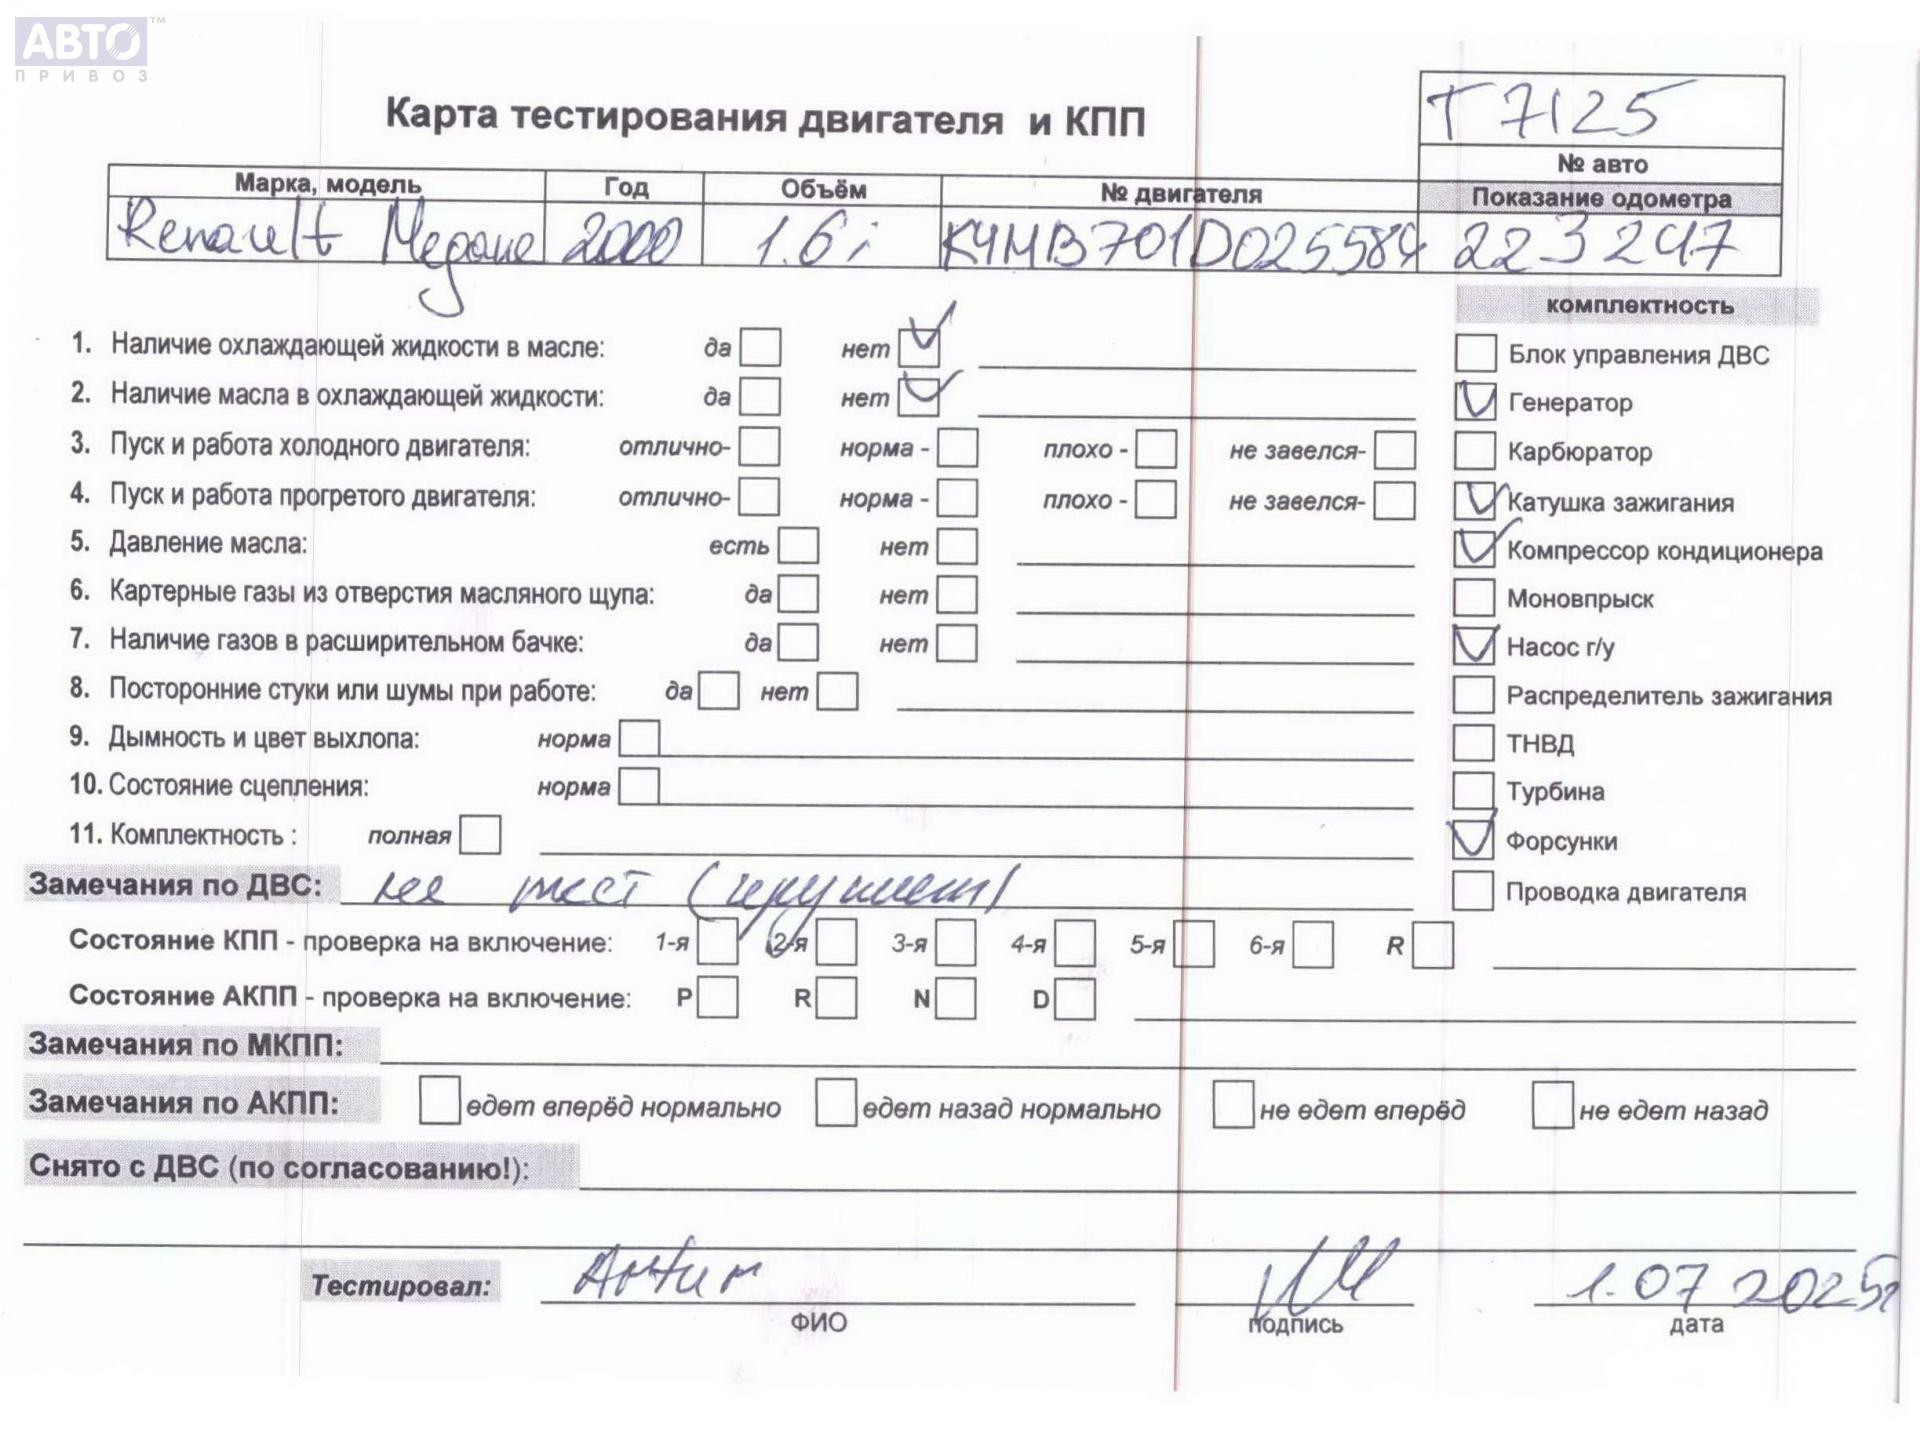 АВТО™
ПРИВОЗ
Карта тестирования двигателя и КПП
Т 7125
№ авто
Марка, модель Год Объём № двигателя Показание одометра
Renault Megane 2000 1.6i K4MB701D025584 223247
комплектность
1. Наличие охлаждающей жидкости в масле: да нет
Блок управления ДВС
2. Наличие масла в охлаждающей жидкости: да нет
Генератор
3. Пуск и работа холодного двигателя: отлично- норма - плохо - не завелся-
Карбюратор
4. Пуск и работа прогретого двигателя: отлично- норма - плохо - не завелся-
Катушка зажигания
5. Давление масла: есть нет
Компрессор кондиционера
6. Картерные газы из отверстия масляного щупа: да нет
Моновпрыск
7. Наличие газов в расширительном бачке: да нет
Насос г/у
8. Посторонние стуки или шумы при работе: да нет
Распределитель зажигания
9. Дымность и цвет выхлопа: норма
ТНВД
10. Состояние сцепления: норма
Турбина
11. Комплектность : полная
Форсунки
Замечания по ДВС: не тест
Проводка двигателя
Состояние КПП - проверка на включение: 1-я 2-я 3-я 4-я 5-я 6-я R
Состояние АКПП - проверка на включение: P R N D
Замечания по МКПП:
Замечания по АКПП: едет вперёд нормально едет назад нормально не едет вперёд не едет назад
Снято с ДВС (по согласованию!):
Тестировал: 1.07 2025г
ФИО подпись дата